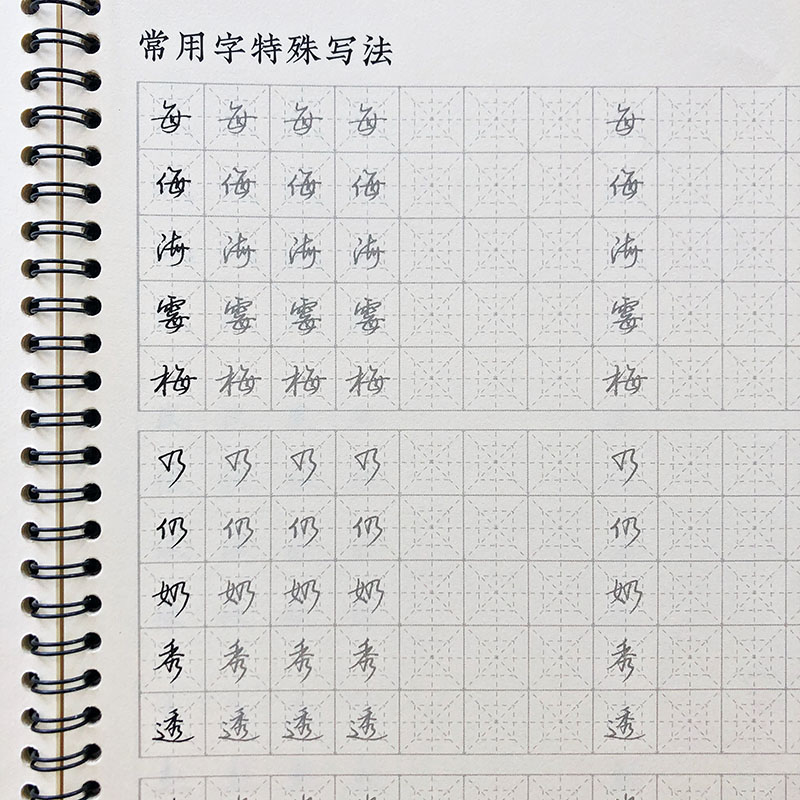 常用字特殊写法
每 每 每 每 每
侮 侮 侮 侮 侮
海 海 海 海 海
霉 霉 霉 霉 霉
梅 梅 梅 梅 梅
乃 乃 乃 乃 乃
仍 仍 仍 仍 仍
奶 奶 奶 奶 奶
秀 秀 秀 秀 秀
透 透 透 透 透